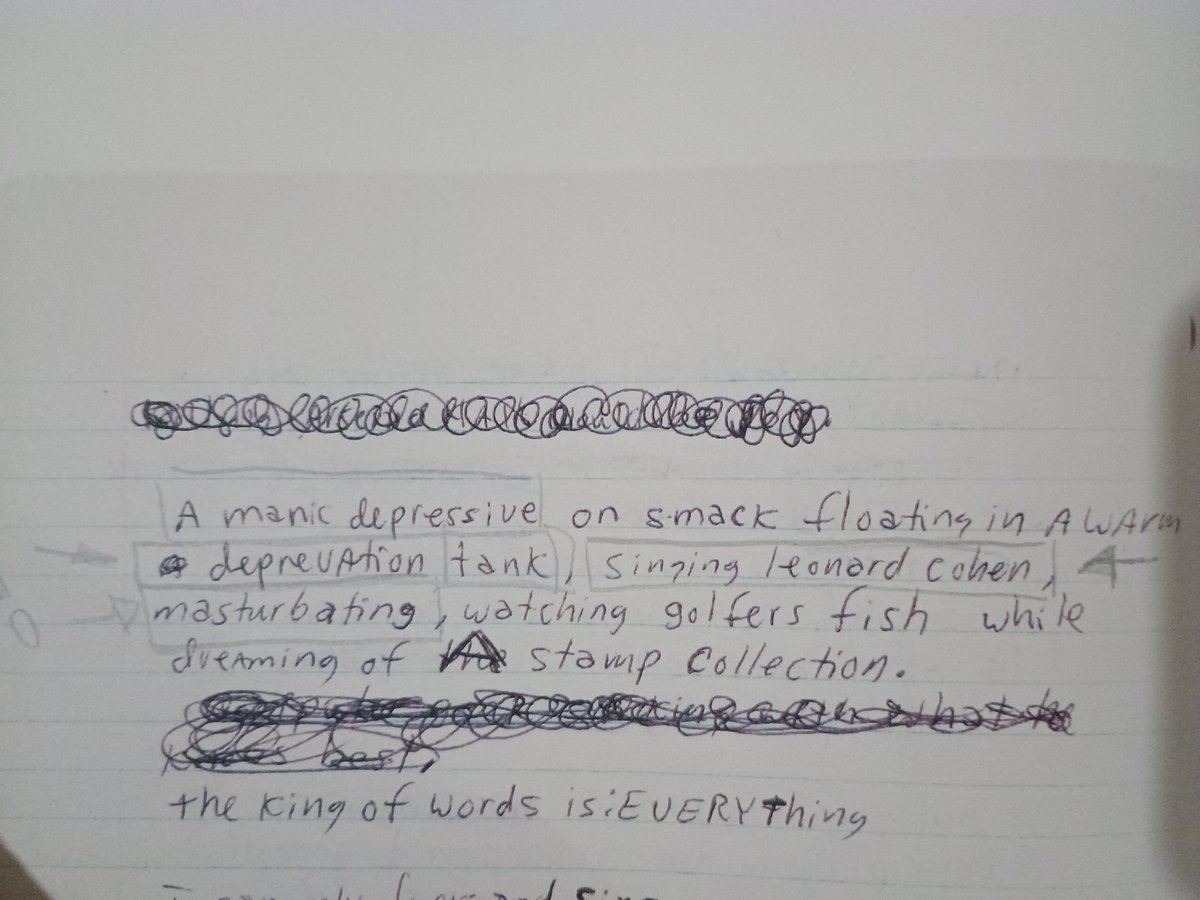 A manic depressive on smack floating in A WArm
deprevAtion tank, singing leonard cohen,
masturbating, watching golfers fish while
dreaming of A stamp collection.
best,
the King of words is:EVERYthing
and